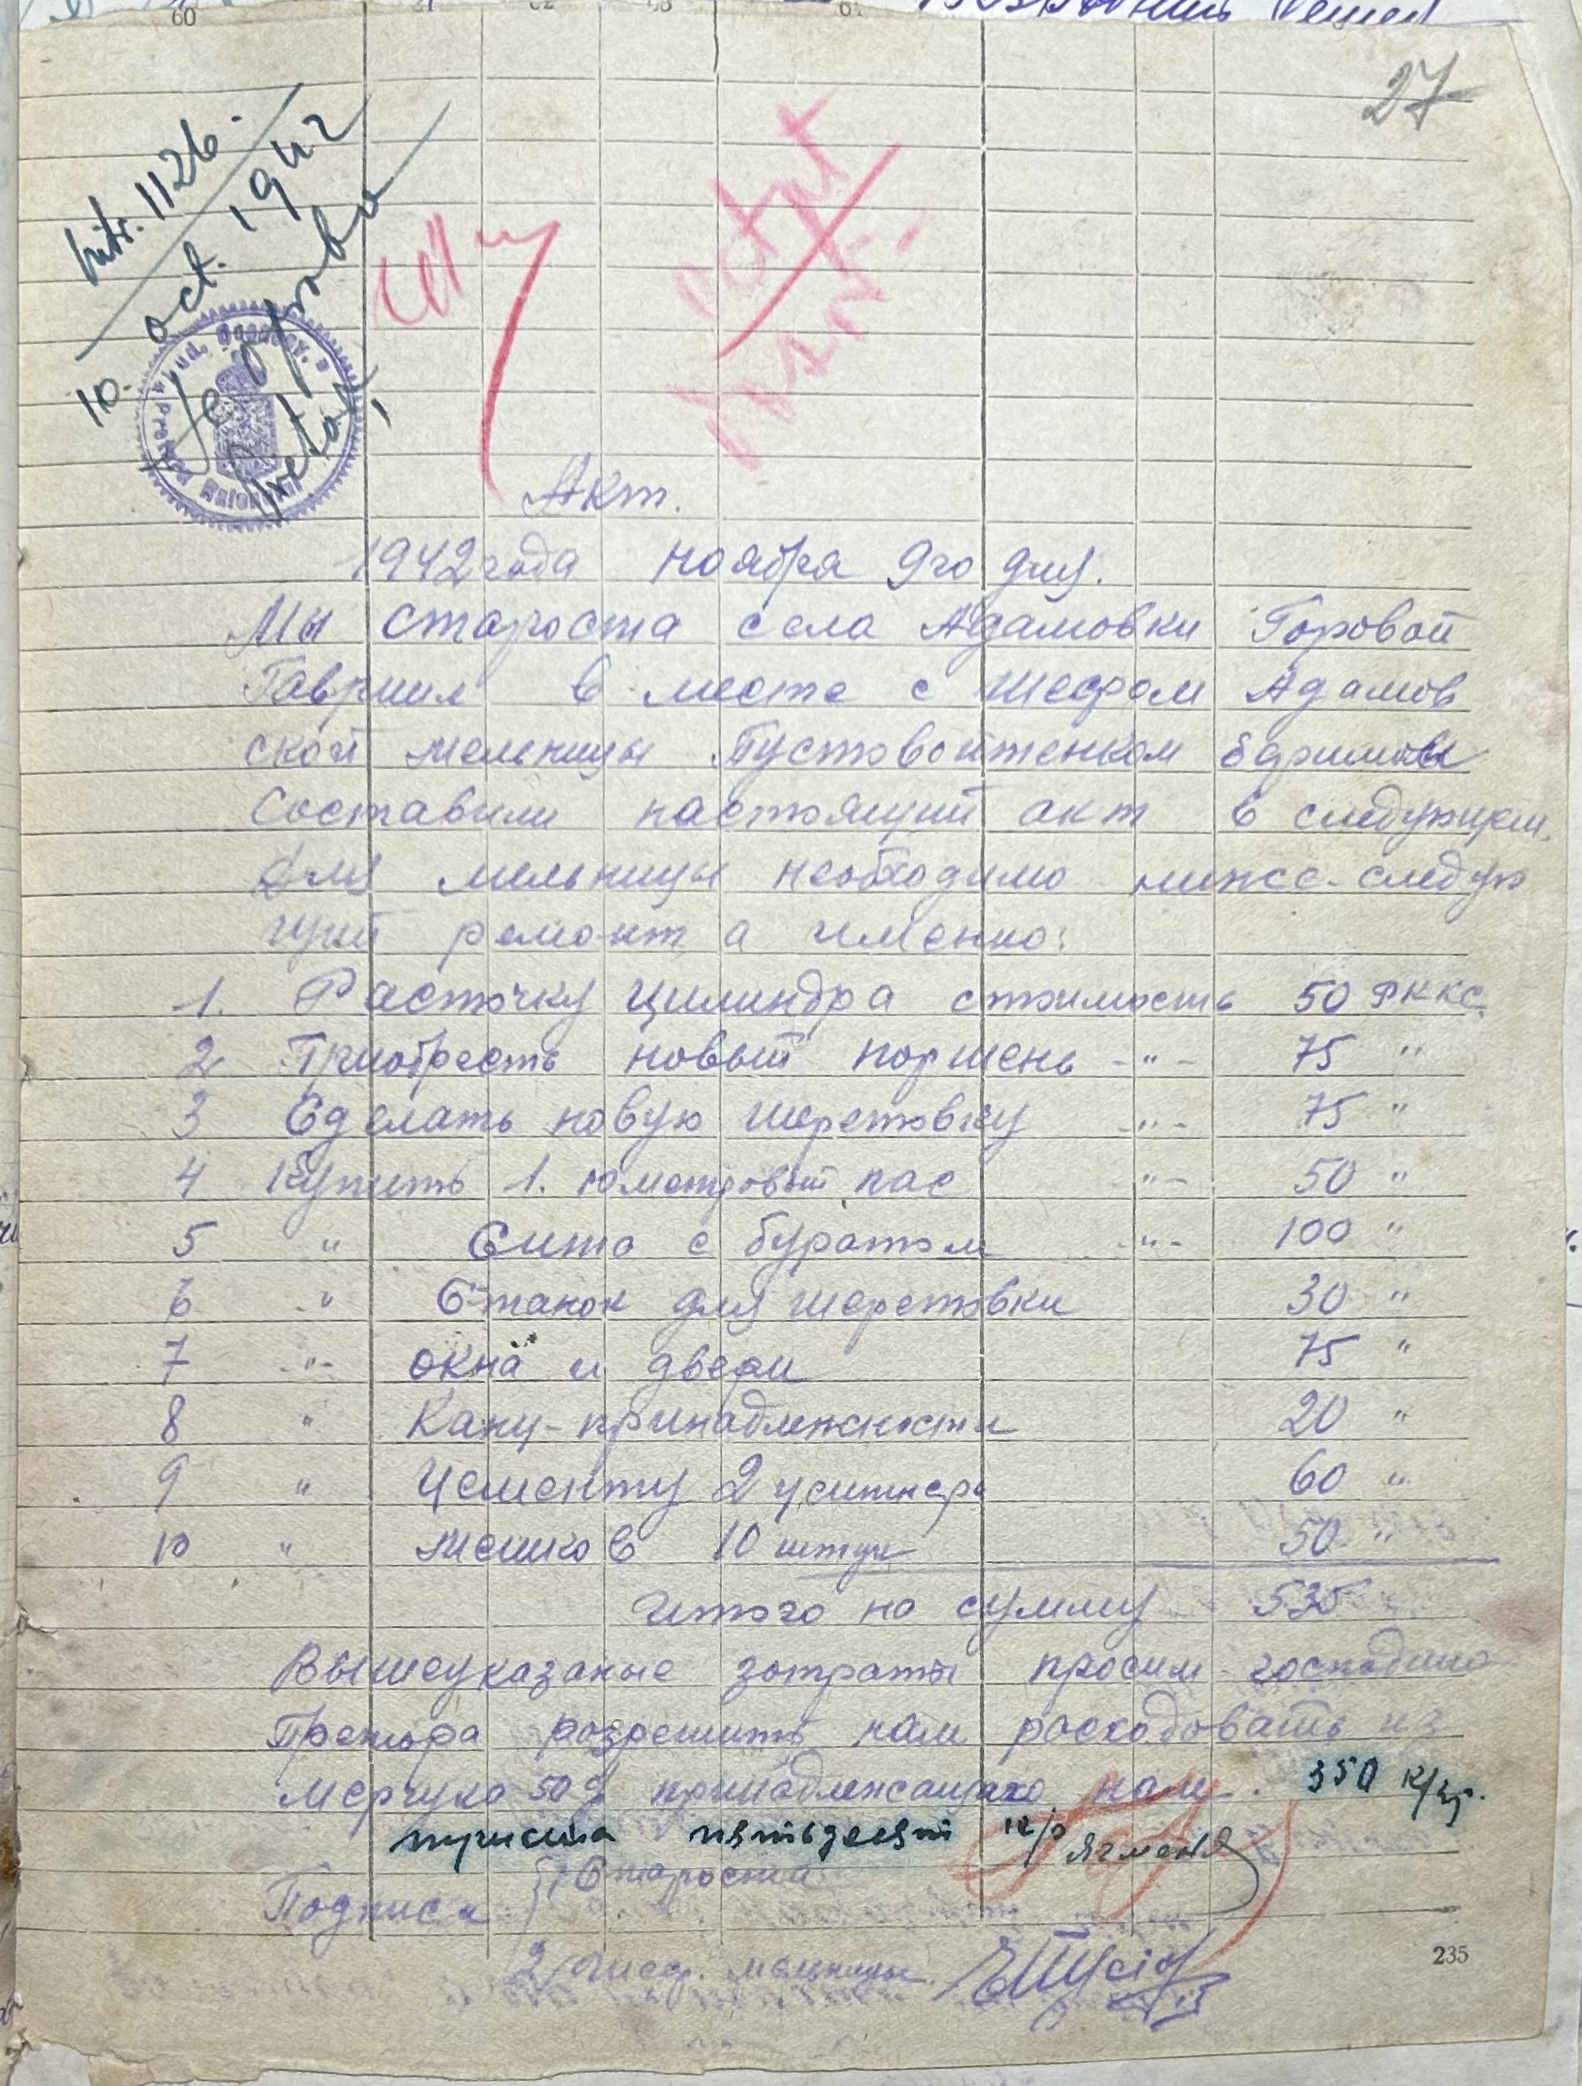 27
Intr. 1126.
10. oct. 1942
Pretor
Акт.
1942 года ноября 9го дня.
Мы староста села Адамовки Горовой
Гавриил в месте с шефом Адамов
ской мельницы Пустовойтенком
Составили настоящий акт в следующем.
Для мельницы необходимо ниже-следую
щий ремонт а именно:
1. Расточку цилиндра стоимость 50 РККС.
2 Приобресть новый поршень -"- 75 "
3 Сделать новую шеретовку -"- 75 "
4 Купить 1. 10метровый пас -"- 50 "
5 " Сита с буратом -"- 100 "
6 -"- Станок для шеретовки 30 "
7 -"- окна и двери 75 "
8 " Канц-принадлежности 20 "
9 " Цементу 2 центнера 60 "
10 " мешков 10 штук 50 "
Итого на сумму 535 "
Вышеуказаные затраты просим господина
Претора розрешить нам расходовать из
мерчука 50% принадлежащаго нам. 350 к/гр.
триста пятьдесят к/г ячменя
Подписи 1/ Староста
2/ Шеф. мельницы
235